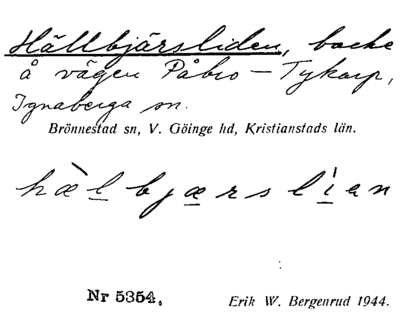 Hällbjärsliden, backe
å vägen Påbro – Tykarp,
Ignaberga sn.
Brönnestad sn, V. Göinge hd, Kristianstads län.
hæ̀l̲bjæ̲rslìan
Nr 5354.
Erik W. Bergenrud 1944.